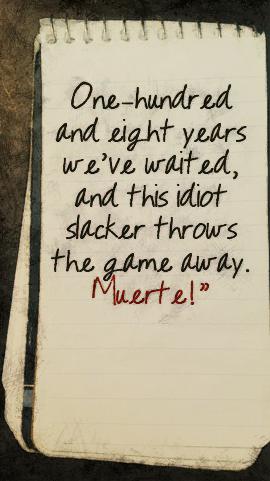 One-hundred
and eight years
we've waited,
and this idiot
slacker throws
the game away.
Muerte!"